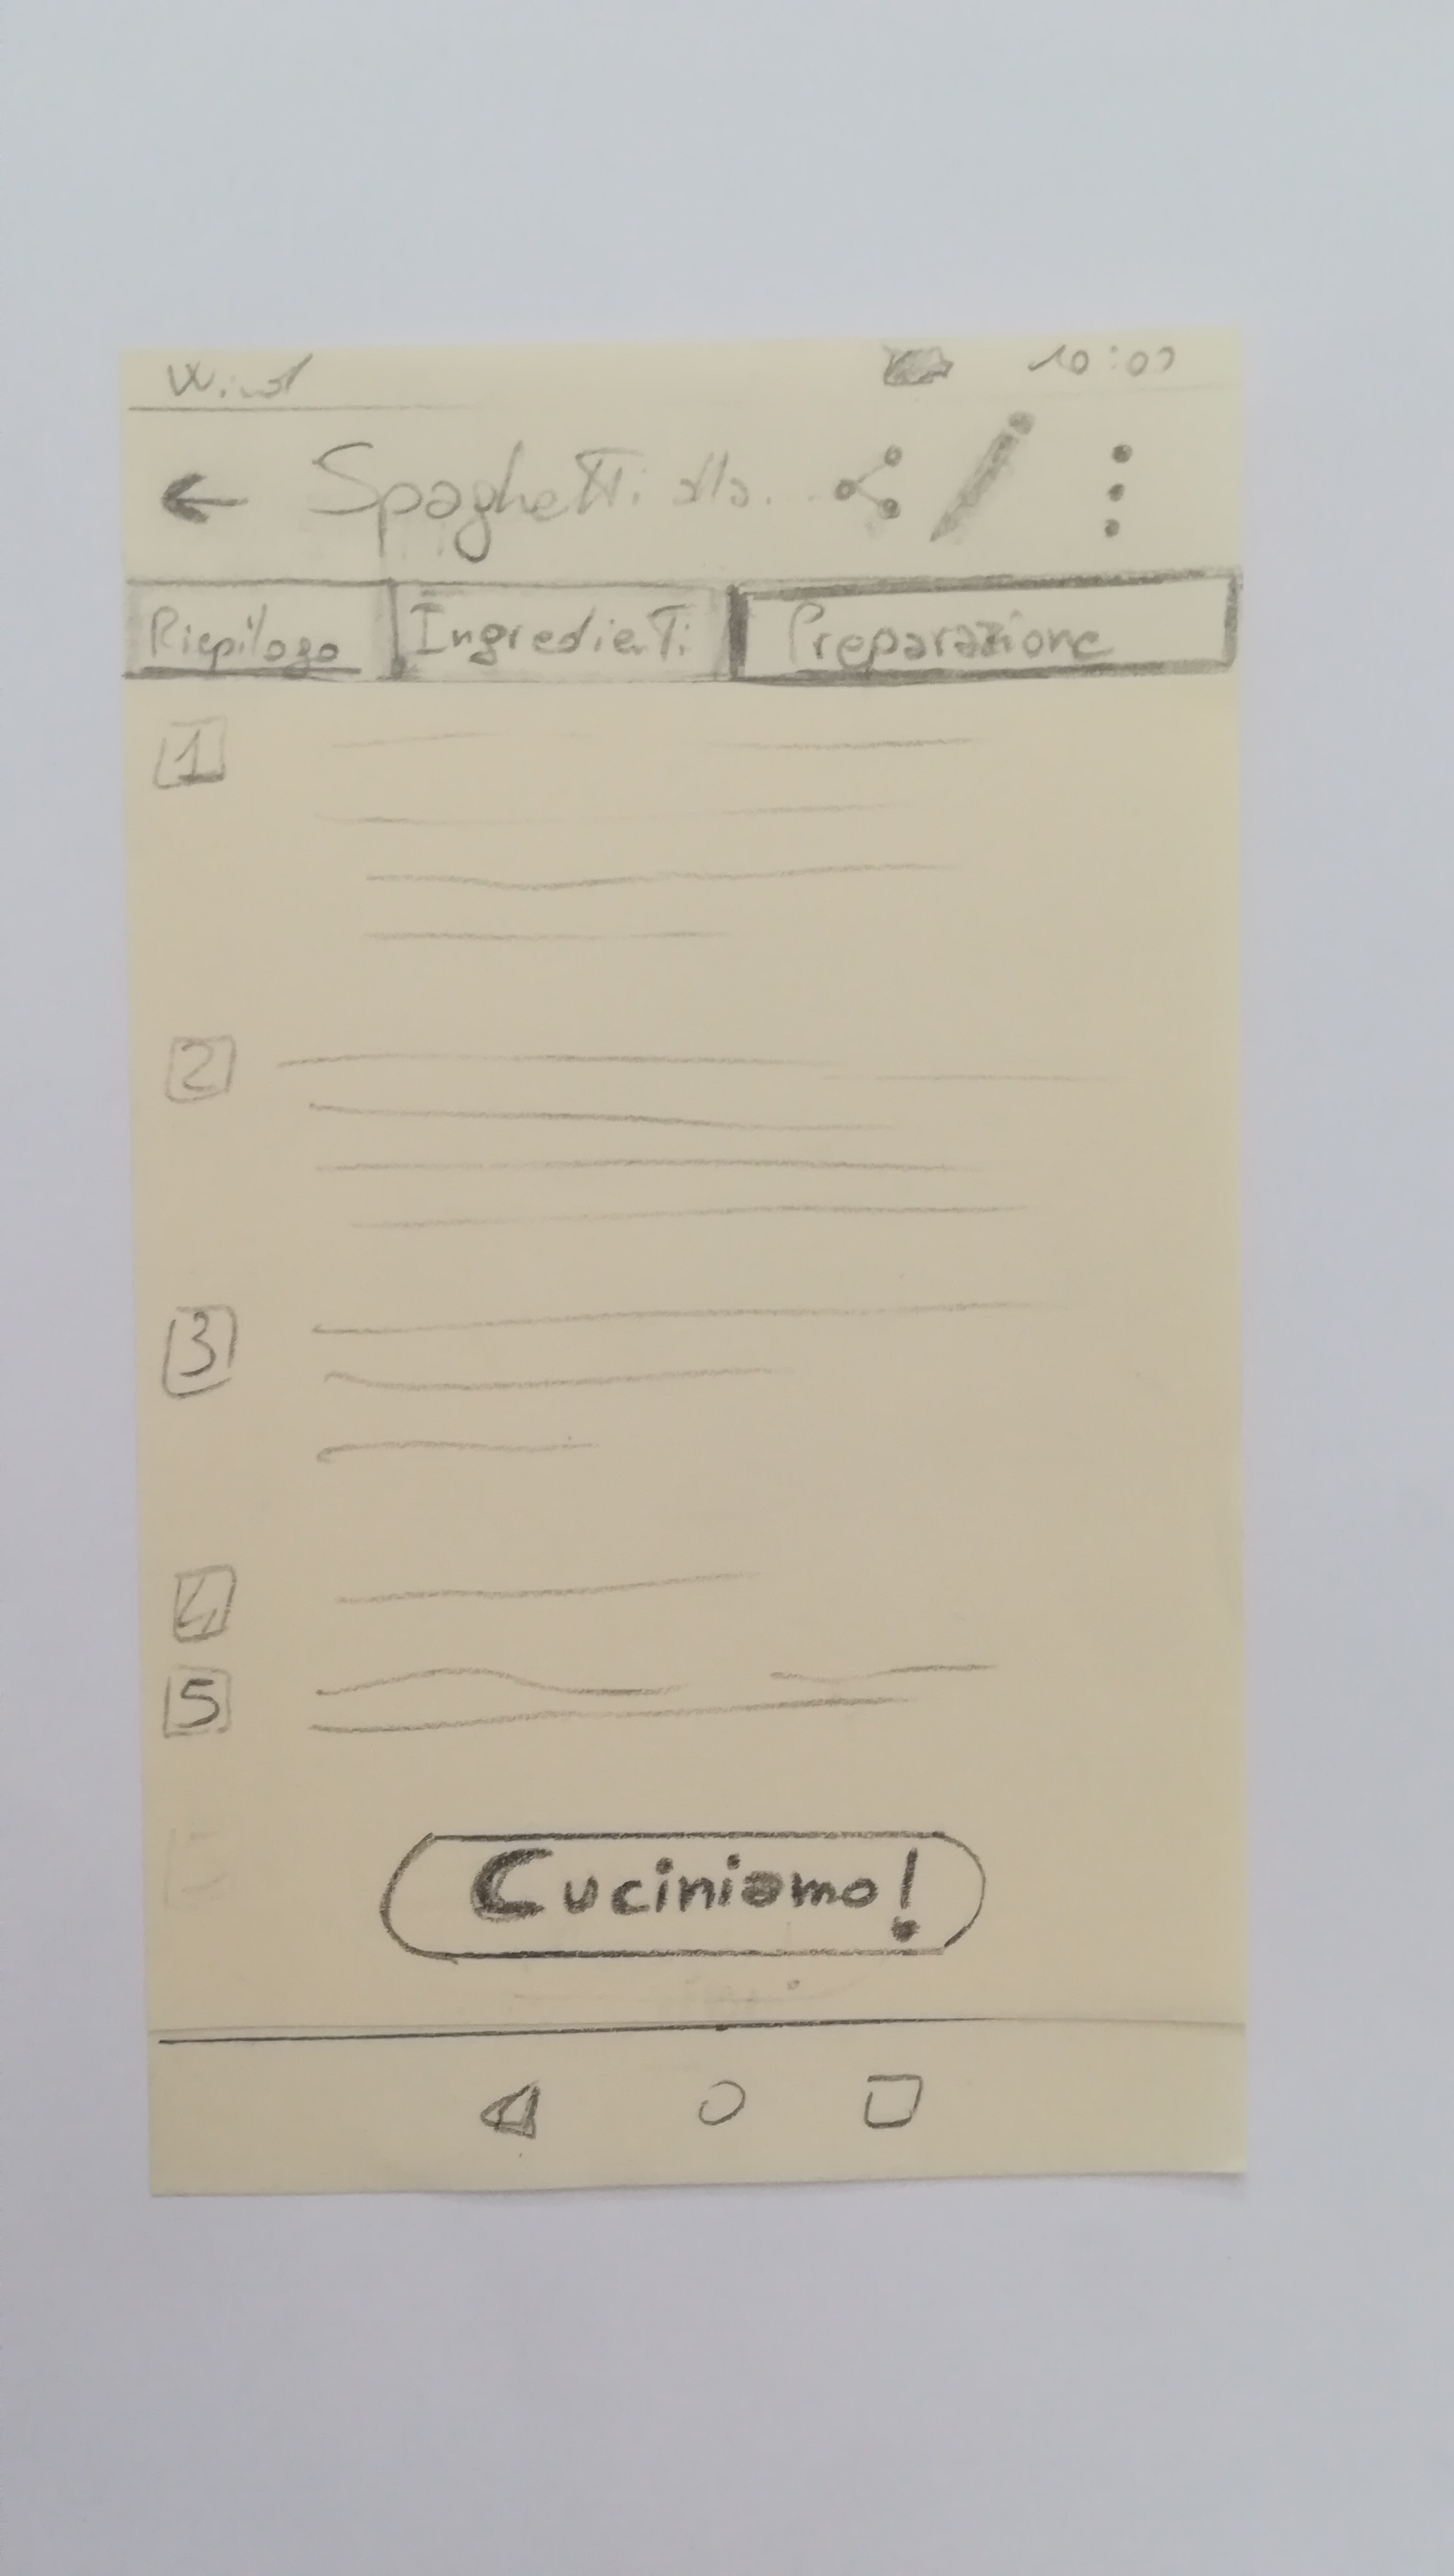 Wind 10:00
Spaghetti alla...
Riepilogo Ingredienti Preparazione
1
2
3
4
5
Cuciniamo!